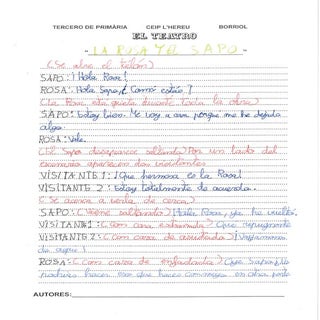 TERCERO DE PRIMÀRIA CEIP L'HEREU BORRIOL
EL TEATRO
- LA ROSA Y EL SAPO -
(Se abre el telón)
SAPO: ¡Hola Rosa!
ROSA: Hola Sapo, ¿Como estás?
(La Rosa está quieta durante toda la obra)
SAPO: Estoy bien. Me voy a casa porque me he dejado
algo.
ROSA: Vale.
(El Sapo desaparece saltando) Por un lado del
escenario aparecen dos visitantes
VISITANTE 1: ¡Que hermosa es la Rosa!
VISITANTE 2: Estoy totalmente de acuerdo.
(Se acerca a verla de cerca)
SAPO: (Viene saltando) ¡Hola Rosa, ya he vuelto!
VISITANTE 1: (Con cara extrañada) ¡Que repugnante
VISITANTE 2: (Con cara de asustada) ¡Vayámonos
de aquí!
ROSA: (Con cara de enfadada) ¡Que Sapo! No
podrias hacer eso que haces conmigo en otra parte
AUTORES: